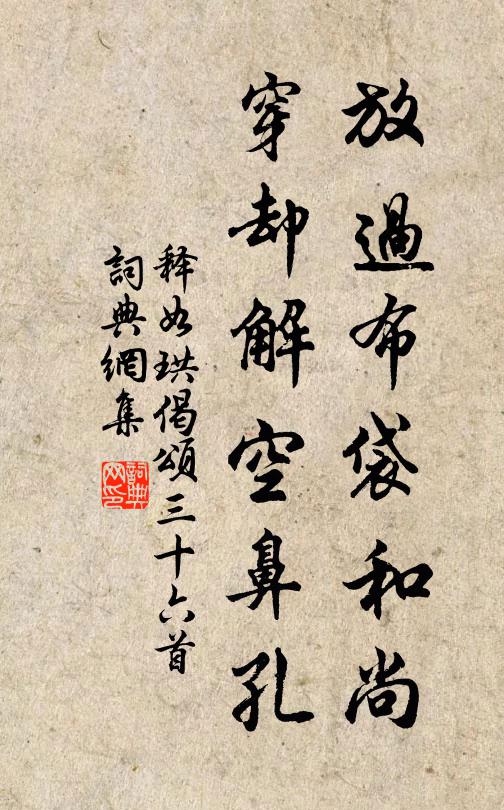 放過布袋和尚
穿却解空鼻孔
释如珙偈頌三十六首
詞典網集
詞典
网印